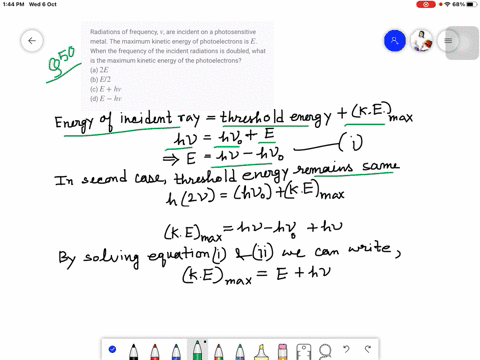 1:44 PM Wed 6 Oct
68%
Radiations of frequency, ν, are incident on a photosensitive
metal. The maximum kinetic energy of photoelectrons is E.
When the frequency of the incident radiations is doubled, what
is the maximum kinetic energy of the photoelectrons?
(a) 2E
(b) E/2
(c) E + hν
(d) E − hν
Energy of incident ray = threshold energy + (K.E)max
hν = hν₀ + E
⇒ E = hν − hν₀ —— (i)
In second case, threshold energy remains same
h(2ν) = (hν₀) + (K.E)max
(K.E)max = hν − hν₀ + hν
By solving equation (i) & (ii) we can write,
(K.E)max = E + hν